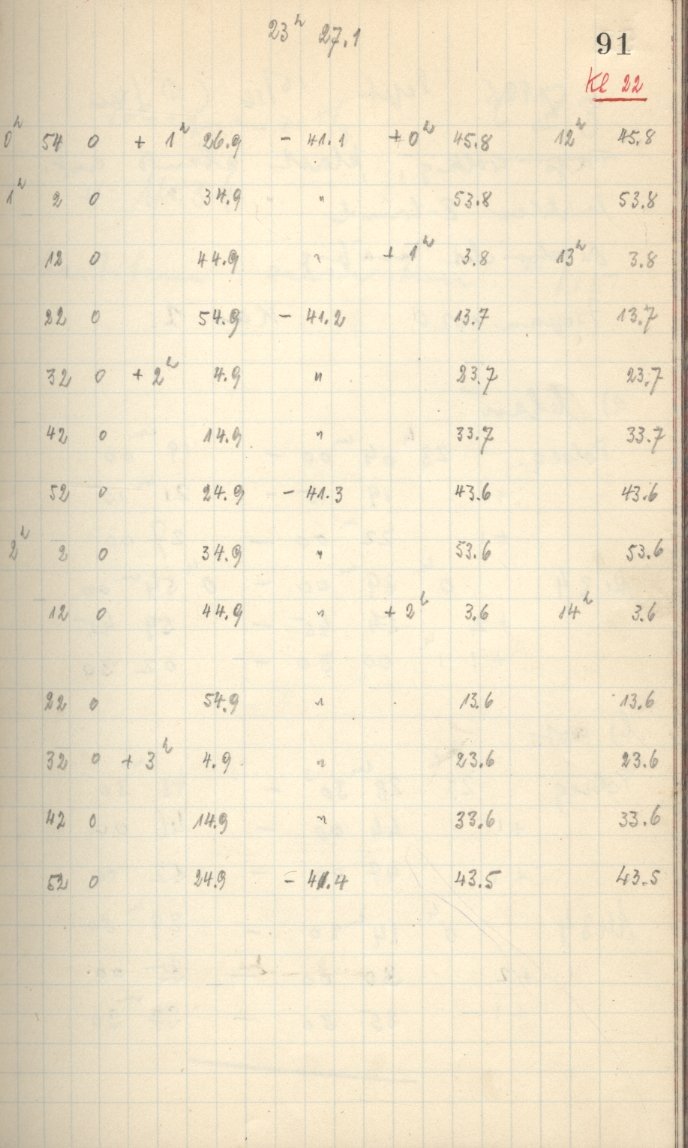 23ʰ 27.1
91
Kl 22
0ʰ 54 0 + 1ʰ 26.9 - 41.1 + 0ʰ 45.8 12ʰ 45.8
1ʰ 2 0 34.9 " 53.8 53.8
12 0 44.9 " + 1ʰ 3.8 13ʰ 3.8
22 0 54.9 - 41.2 13.7 13.7
32 0 + 2ʰ 4.9 " 23.7 23.7
42 0 14.9 " 33.7 33.7
52 0 24.9 - 41.3 43.6 43.6
2ʰ 2 0 34.9 " 53.6 53.6
12 0 44.9 " + 2ʰ 3.6 14ʰ 3.6
22 0 54.9 " 13.6 13.6
32 0 + 3ʰ 4.9 " 23.6 23.6
42 0 14.9 " 33.6 33.6
52 0 24.9 - 41.4 43.5 43.5